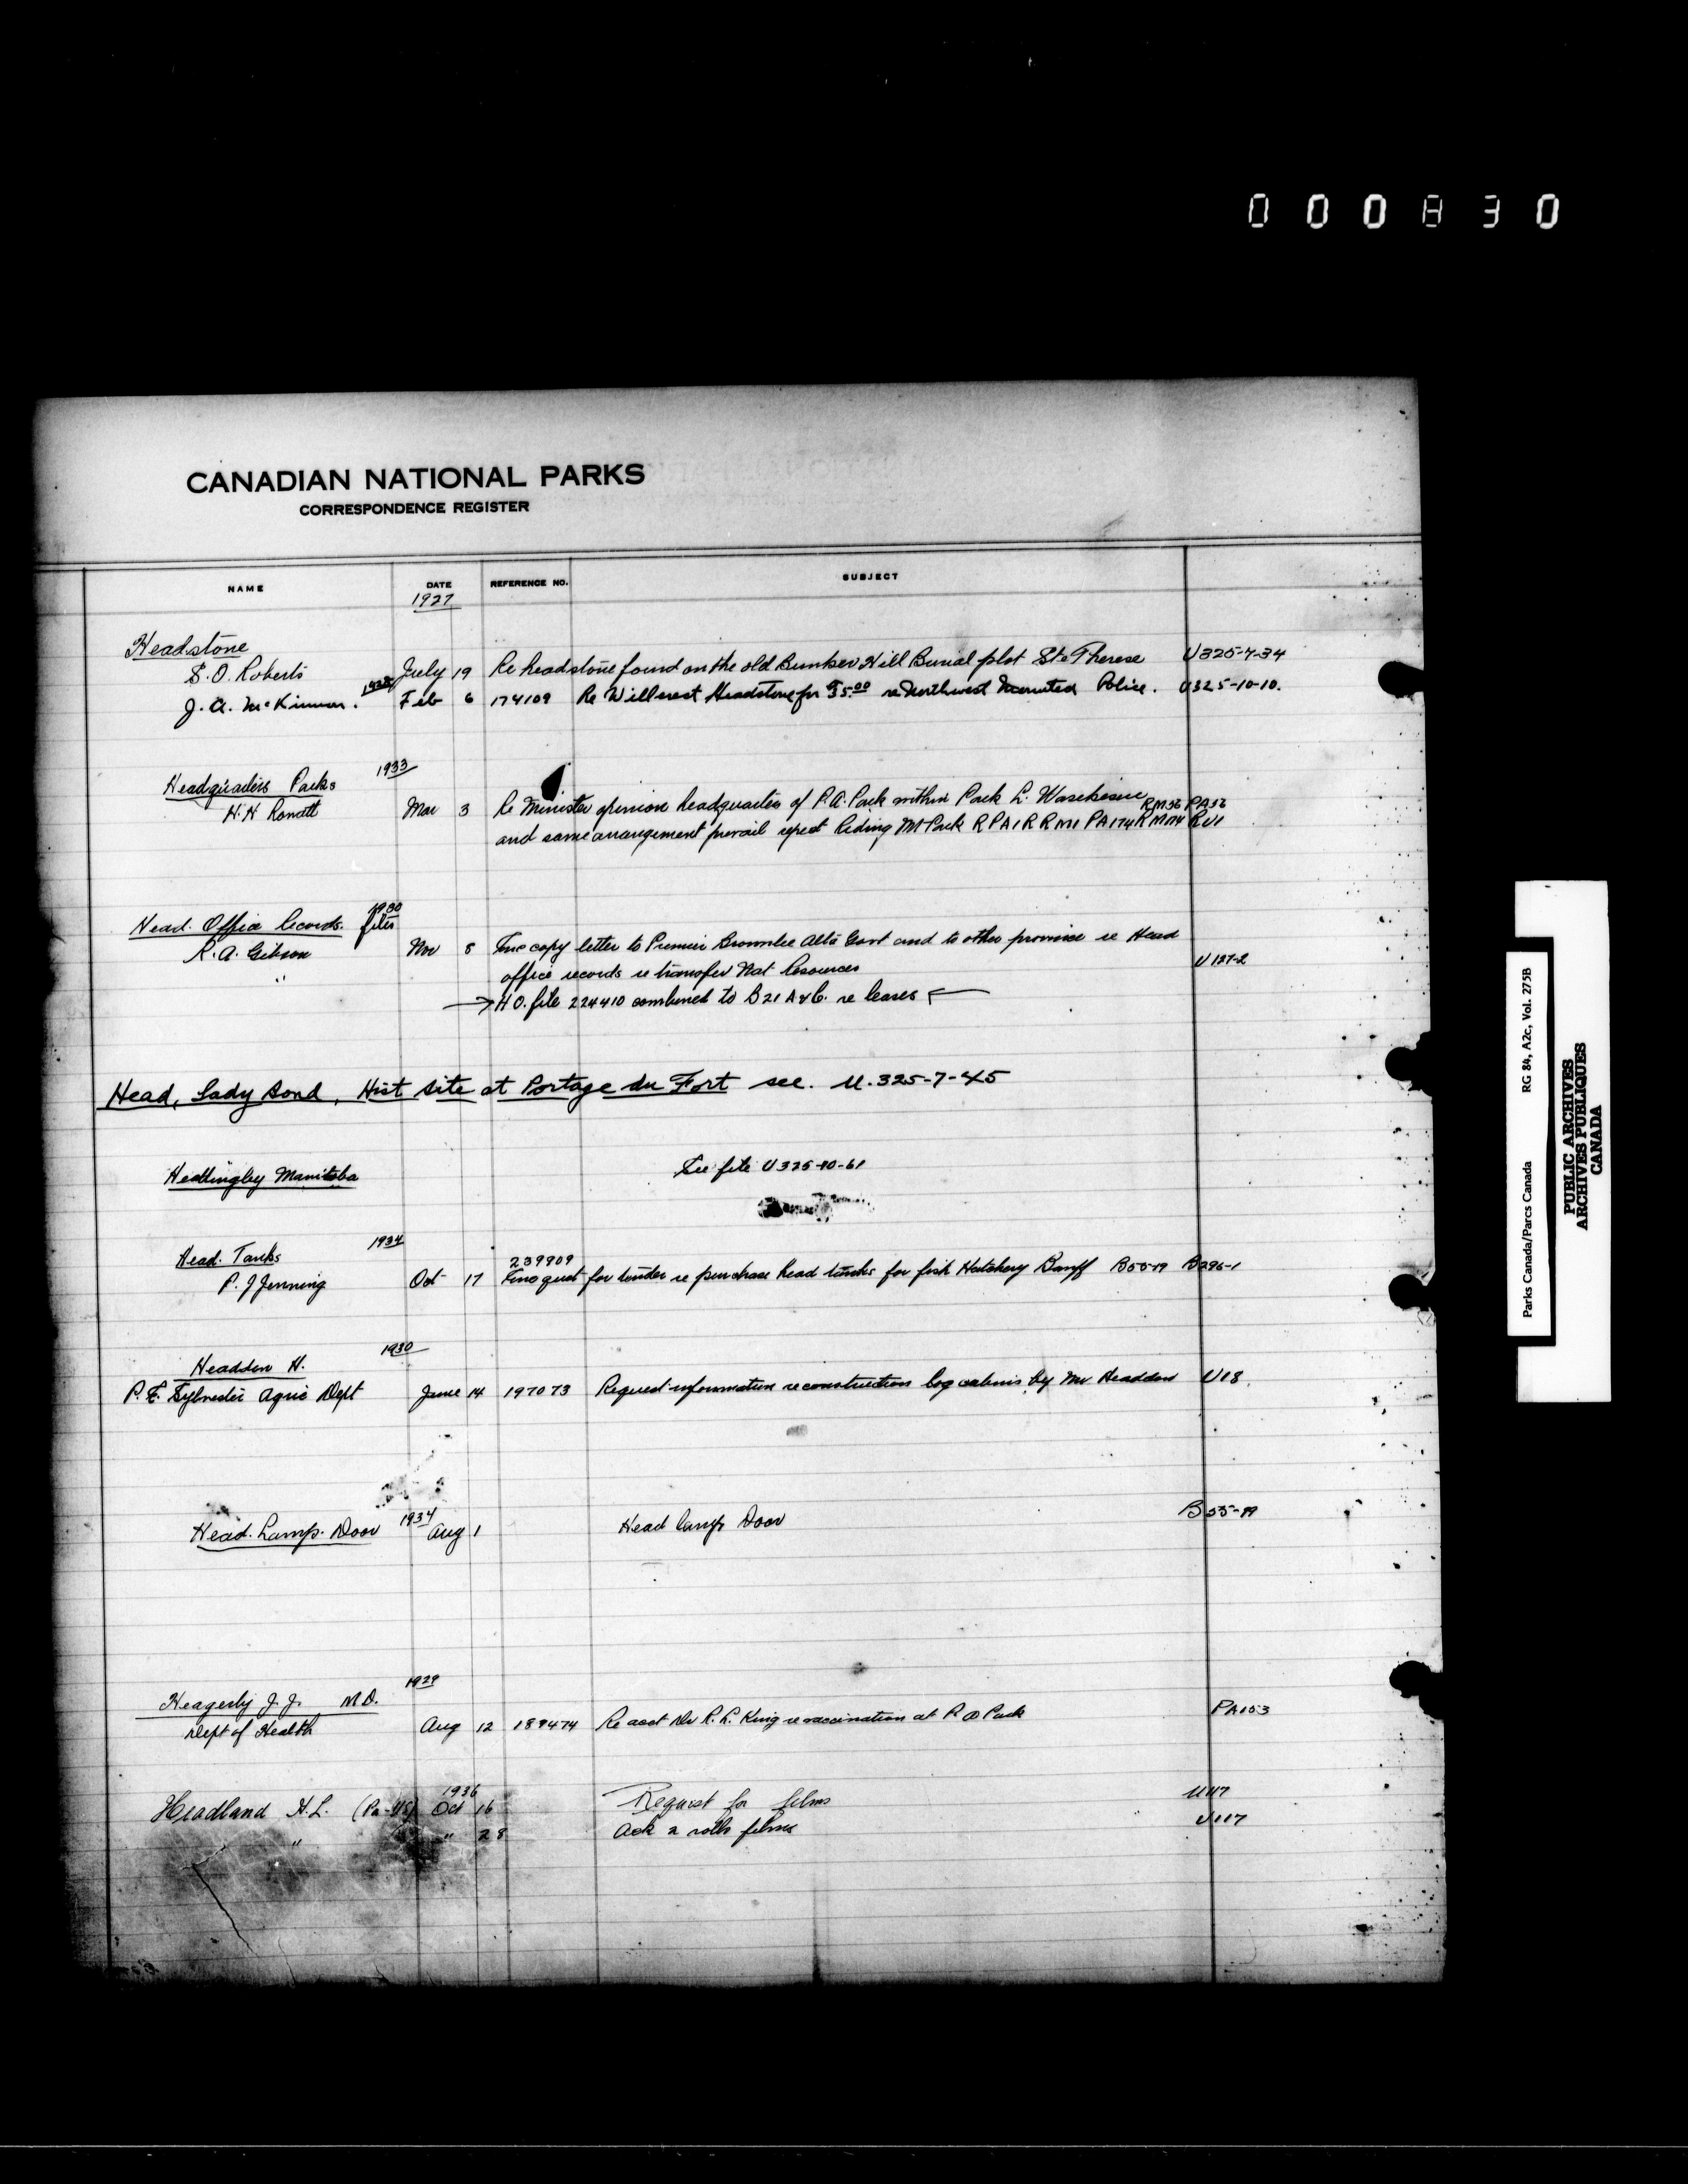 000830
CANADIAN NATIONAL PARKS
CORRESPONDENCE REGISTER
NAME DATE REFERENCE NO. SUBJECT
1927
Headstone
S. O. Roberts July 19 Re headstone found on the old Bunker Hill Burial plot Ste Therese U325-7-34
J. A. McKinnon. 1928 Feb 6 174109 Re Will erect Headstone for 35.00 re Northwest Mounted Police. U325-10-10.
Headquaders Parks 1933
H. H Mar 3 Re Minister opinion headquarters of P.A. Park within Park L. Waskesiu RM56 PA56
and same arrangement prevail Riding Mt Park R PA1 R RM1 PA174 RM174 RU1
Head. Office Records. files 1930
R. A. Gibson Nov 8 copy letter to Premier Brownlee Alta Govt and to other province re Head
" office records re transfer Nat Resources U127-2
→ H O. file 224410 combined to B21 A & C. re leases ←
Head, Lady Bond, Hist site at Portage du Fort see. U.325-7-45
Headingley Manitoba See file U325-10-61
Head. Tanks 1934 239909
P. J Jenning Oct 17 for tender re purchase head for fish Hatchery Banff B55-19 B296-1
Headdon H. 1930
P. E. Sylvester Agric Dept June 14 197073 Request information re construction log cabins by Mr Headdon U18
Head. Lamp. Door 1934 Aug 1 Head lamp Door B55-19
Heagerty J. J. M.D. 1929
Dept of Health Aug 12 189474 Re acct Dr R. L. King re vaccination at P A Park PA153
Headland H. L. 1936 Oct 16 Request for films U117
" " 28 Ack 2 rolls films U117
Parks Canada/Parcs Canada RG 84, A2c, Vol. 275B
PUBLIC ARCHIVES
ARCHIVES PUBLIQUES
CANADA